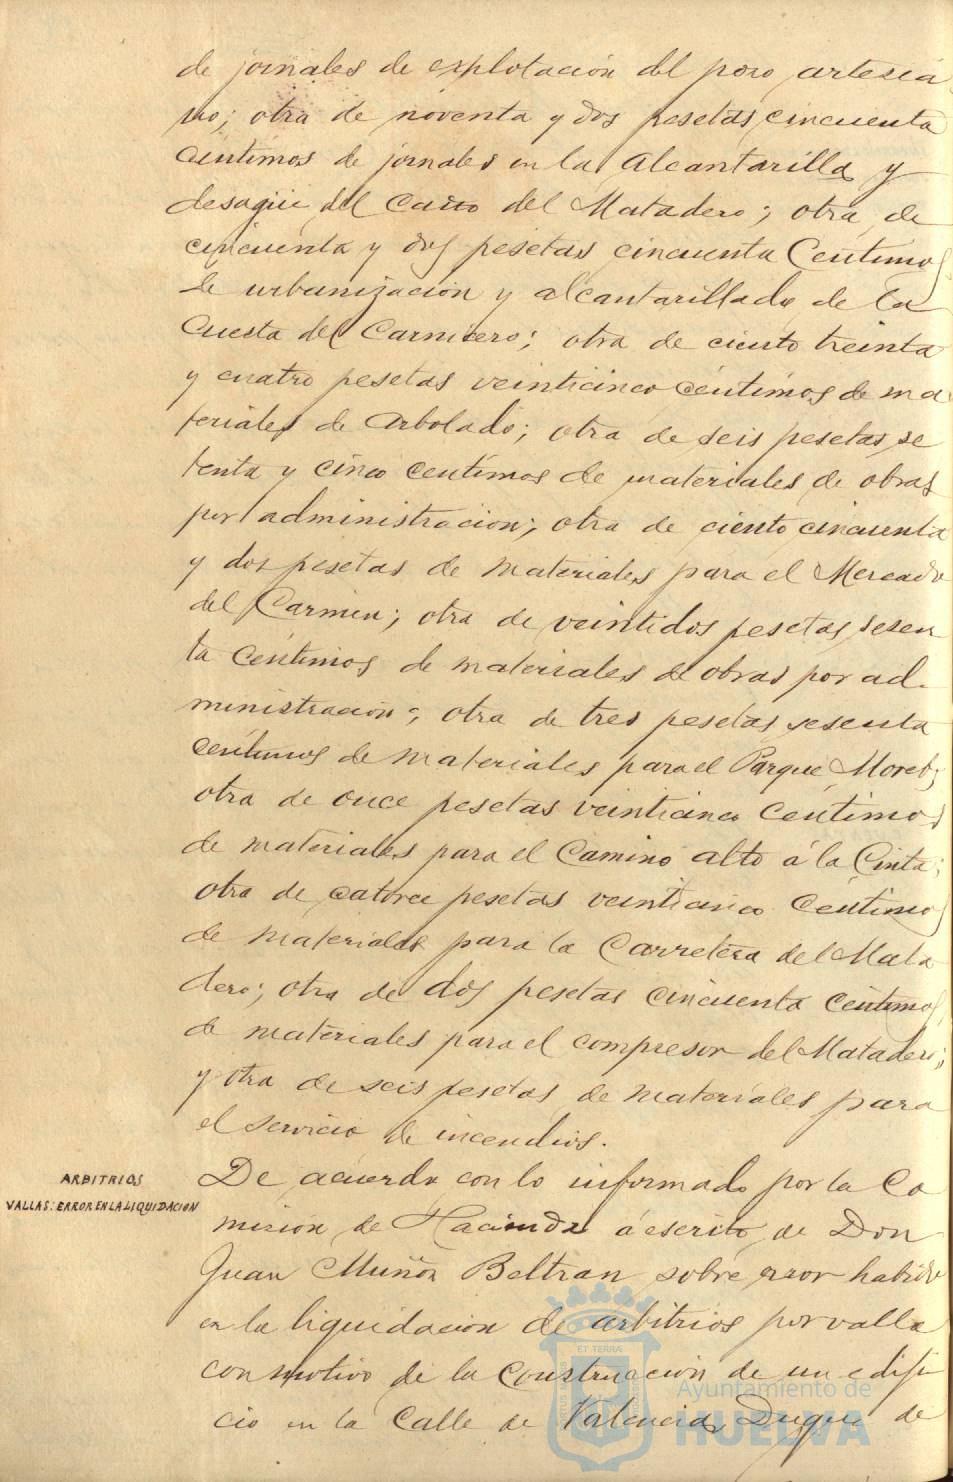 de jornales de explotación del pozo artesia
no; otra de noventa y dos pesetas cincuenta
centimos de jornales en la Alcantarilla y
desagüe del Caño del Matadero; otra de
cincuenta y dos pesetas cincuenta Centimos
de urbanización y alcantarillado de la
Cuesta del Carnicero; otra de ciento treinta
y cuatro pesetas veinticinco céntimos de ma
teriales de Arbolado; otra de seis pesetas se
tenta y cinco centimos de materiales de obras
por administracion; otra de ciento cincuenta
y dos pesetas de materiales para el Mercado
del Carmen; otra de veintidos pesetas sesen
ta céntimos de materiales de obras por ad-
ministración; otra de tres pesetas sesenta
centimos de materiales para el Parque Moret;
otra de once pesetas veinticinco céntimos
de materiales para el Camino alto á la Cinta;
otra de catorce pesetas veinticinco céntimos
de materiales para la Carretera del Mata
dero; otra de dos pesetas cincuenta céntimos
de materiales para el compresor del Matadero;
y otra de seis pesetas de materiales para
el servicio de incendios.
ARBITRIOS
VALLAS: ERROR EN LA LIQUIDACION
De acuerdo con lo informado por la Co
mision de Hacienda á escrito de Don
Juan Muñoz Beltran sobre error habido
en la liquidacion de arbitrios por valla
con motivo de la construccion de un edifi
cio en la Calle de Valencia, Duque de
ET TERRA
Ayuntamiento de
HUELVA